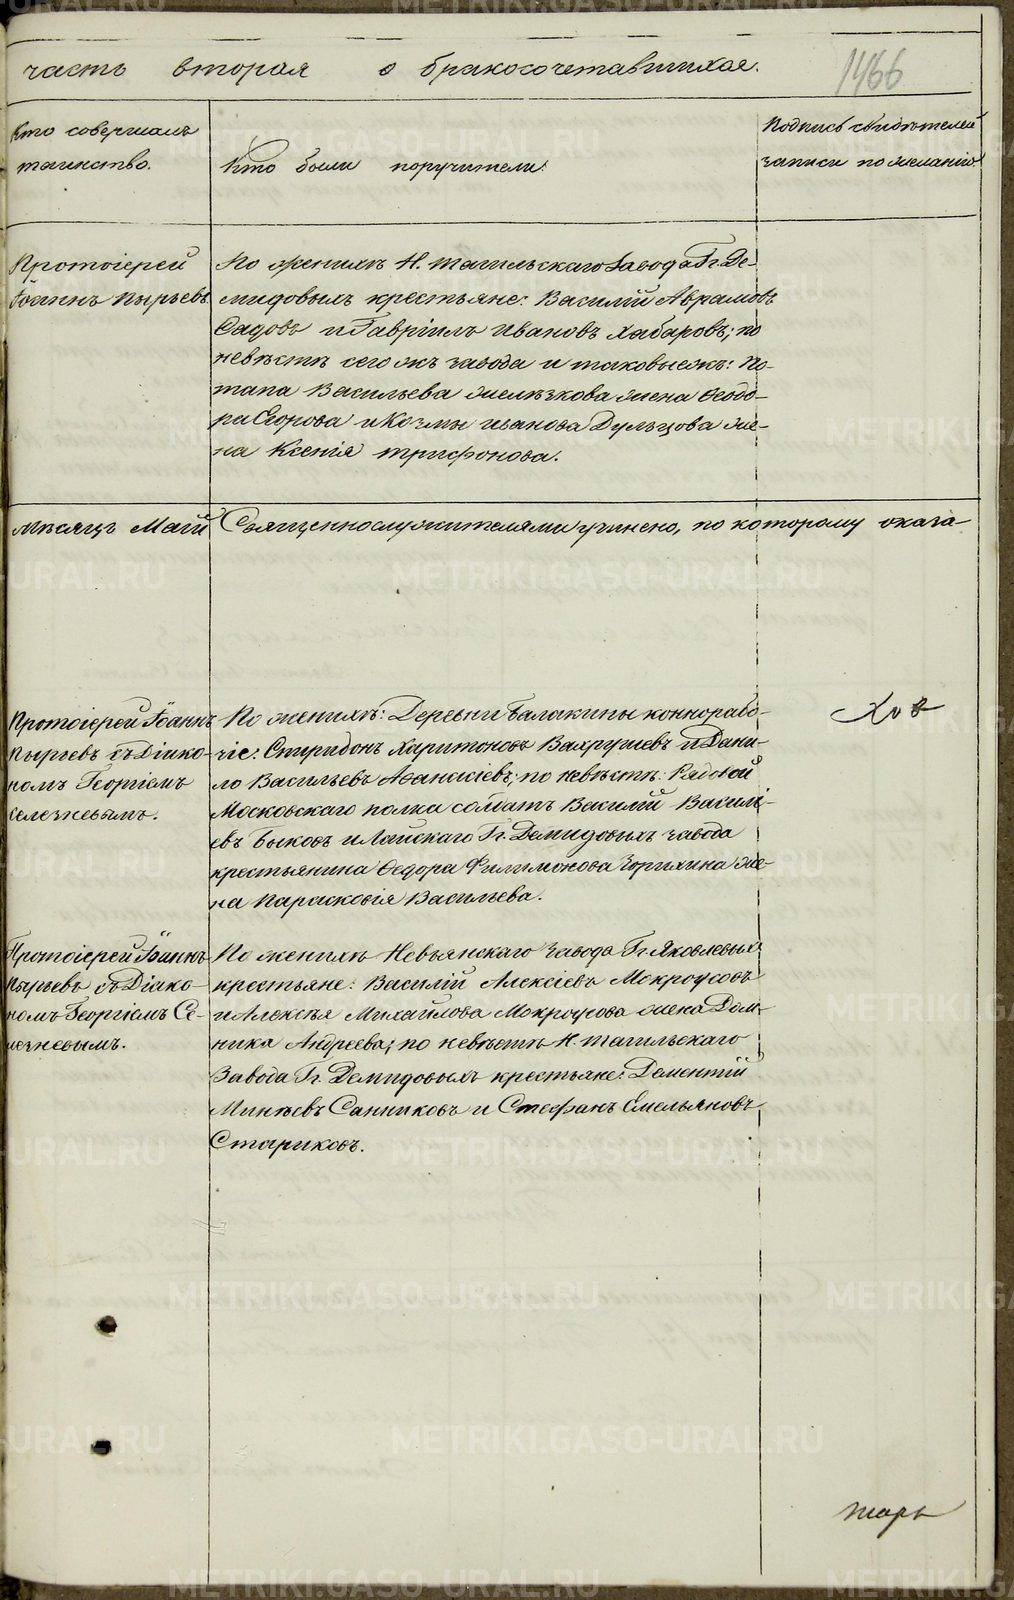 часть вторая о бракосочетавшихся.
1466
Кто совершалъ
таинство.
Кто были поручители.
Подпись свидѣтелей
записи по желанію
Протоіерей
Іоаннъ Пырьевъ
По женихѣ Н. Тагильскаго Завода Гг. Де-
мидовыхъ крестьяне: Василій Аврамовъ
Садовъ и Гавріилъ Ивановъ Хабаровъ; по
невѣстѣ сего жъ завода и таковые жъ: По-
тапа Васильева Желѣзкова жена Ѳеодо-
ра Егорова и Козмы Иванова Дульцова же-
на Ксенія Трифонова.
мѣсяцъ Маій Священнослужителями учинено, по которому оказа-
Протоіерей Іоаннъ
Пырьевъ съ Діако-
номъ Георгіемъ
Селезневымъ.
По женихѣ: Деревни Балакины коннорабо-
чіе: Спиридонъ Харитоновъ Вахрушевъ и Дани-
ло Васильевъ Аѳанасіевъ; по невѣстѣ:
Московскаго полка солдатъ Василій Василі-
евъ Быковъ и Лайскаго Гг. Демидовыхъ завода
крестьянина Ѳедора Филимонова Зорихина же-
на Парасковія Васильева.
Протоіерей Іоаннъ
Пырьевъ съ Діако-
номъ Георгіемъ Се-
лезневымъ.
По женихѣ Невьянскаго Завода Гг. Яковлевыхъ
крестьяне: Василій Алексіевъ Мокроусовъ
и Алексѣя Михайлова Мокроусова жена Дом-
ника Андреева; по невѣстѣ Н. Тагильскаго
Завода Гг. Демидовыхъ крестьяне: Дементій
Минѣевъ Санниковъ и Стефанъ Емельяновъ
Стариковъ.
тарь
METRIKI.GASO-URAL.RU